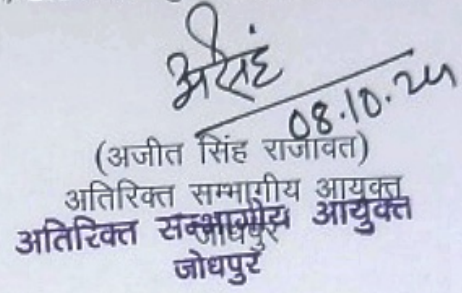 08.10.24
(अजीत सिंह राजावत)
अतिरिक्त सम्भागीय आयुक्त
जोधपुर
अतिरिक्त सम्भागीय आयुक्त
जोधपुर